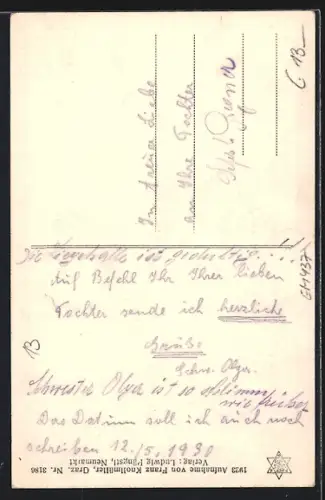 In treuer Liebe
von Ihre Tochter
C 13.—
Die Liegehalle ist
Auf Befehl Ihr Ihrer lieben
Tochter sende ich herzliche
Grüße
Schw. Olga.
Schwester Olga ist so schlimm
wie früher
Das Datum soll ich auch noch
schreiben 12./5. 1930
B
GM437
1933 Aufnahme von Franz Knollmüller, Graz. Nr. 3186
Verlag: Ludwig Püngstl, Neumarkt